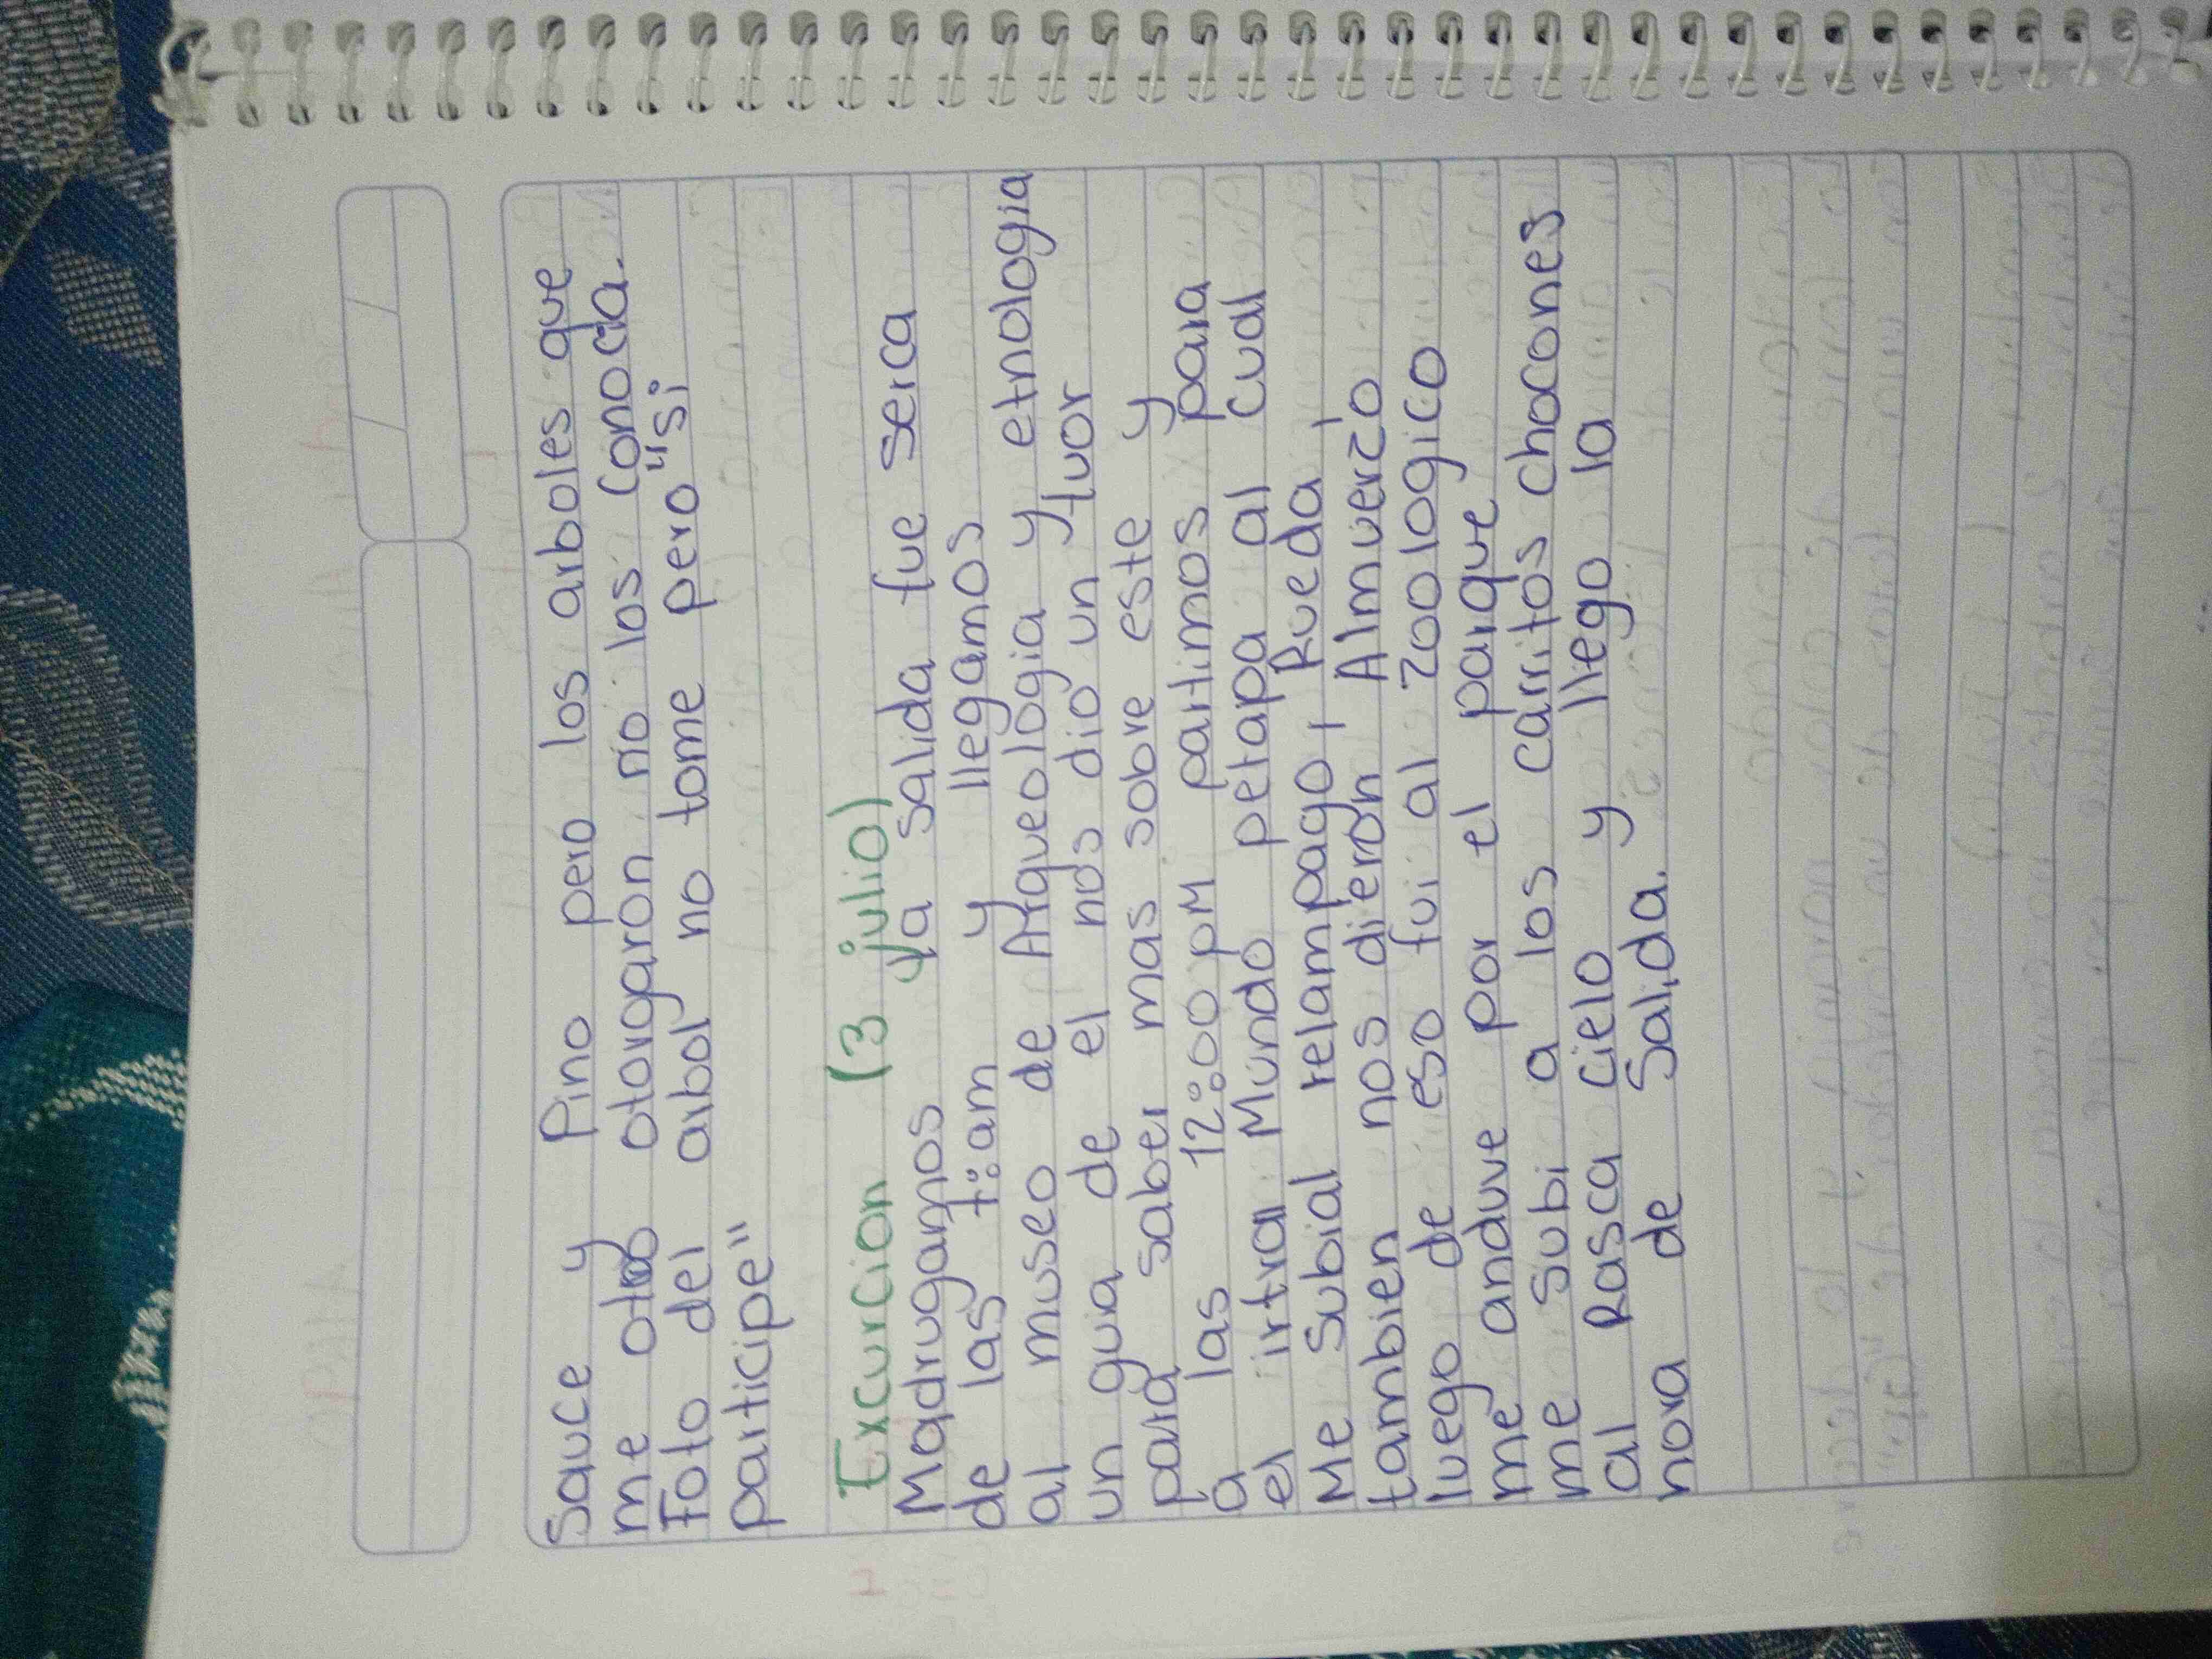 Sauce y Pino pero los arboles que
me otorogaron no los conocia.
Foto del arbol no tome pero "si
participe"
Excurcion (3 julio)
Madrugamos la salida fue serca
de las 7:am y llegamos
al museo de Arqueologia y etnologia
un guia de el nos dio un tuor
para saber mas sobre este y
a las 12:00 pM partimos para
el irtra Mundo petapa al cual
Me Subial relampago, Rueda,
tambien nos dieron Almuerzo
luego de eso fui al zoologico
me anduve por el parque
me subi a los carritos chocones
al Rasca Cielo y llego la
hora de Salida.